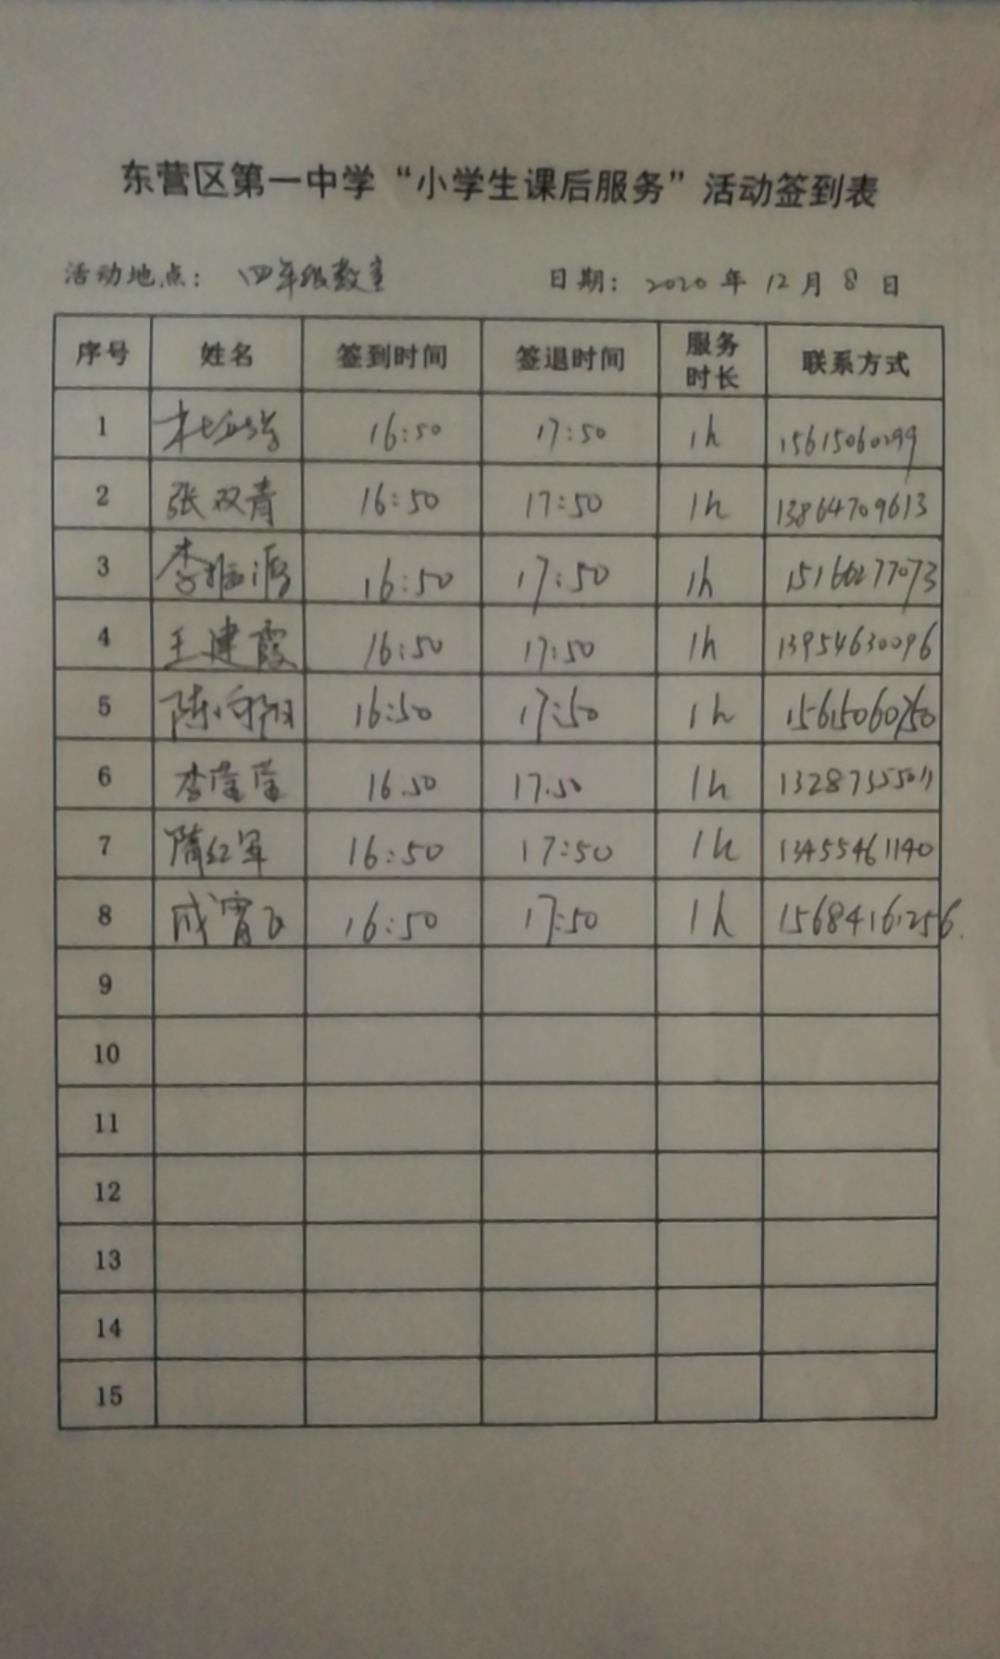 东营区第一中学“小学生课后服务”活动签到表
活动地点： 四年级教室 日期： 2020 年 12 月 8 日
序号 姓名 签到时间 签退时间 服务时长 联系方式
1 16:50 17:50 1h 15615060299
2 张双青 16:50 17:50 1h 13864709613
3 李振源 16:50 17:50 1h 15166277073
4 王建霞 16:50 17:50 1h 13954630096
5 陈向阳 16:50 17:50 1h 15615060750
6 李莹莹 16:50 17:50 1h 13287355011
7 隋红军 16:50 17:50 1h 13455461140
8 成霄飞 16:50 17:50 1h 15684161256
9
10
11
12
13
14
15